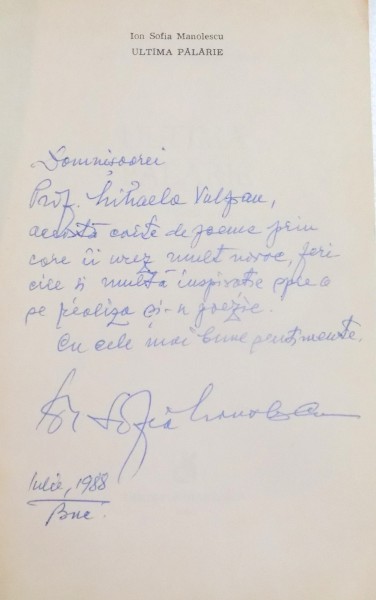 Ion Sofia Manolescu
ULTIMA PĂLĂRIE
Domnișoarei
Prof. Mihaela Vulpan,
această carte de poeme prin
care îi urez mult noroc, feri
cire și multă inspirație spre a
se realiza și-n poezie.
Cu cele mai bune sentimente,
Ion Sofia Manolescu
Iulie, 1988
Buc.